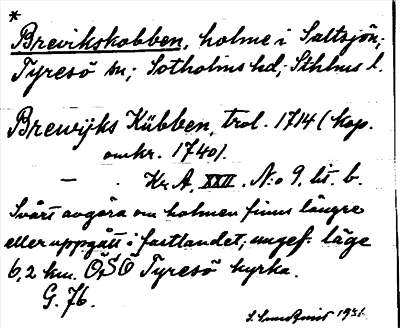 *
Brevikskobben, holme i Saltsjön;
Tyresö sn; Sotholms hd; Sthlms l.
Brewijks Kübben, trol. 1714 (kop.
omkr. 1740).
— . Kr. A, XXII. N:o 9. lit. b.
Svårt avgöra om holmen finns längre
eller uppgått i fastlandet; ungef. läge
6,2 km. ÖSÖ Tyresö kyrka.
G. 76.
S. Lundqvist 1936.